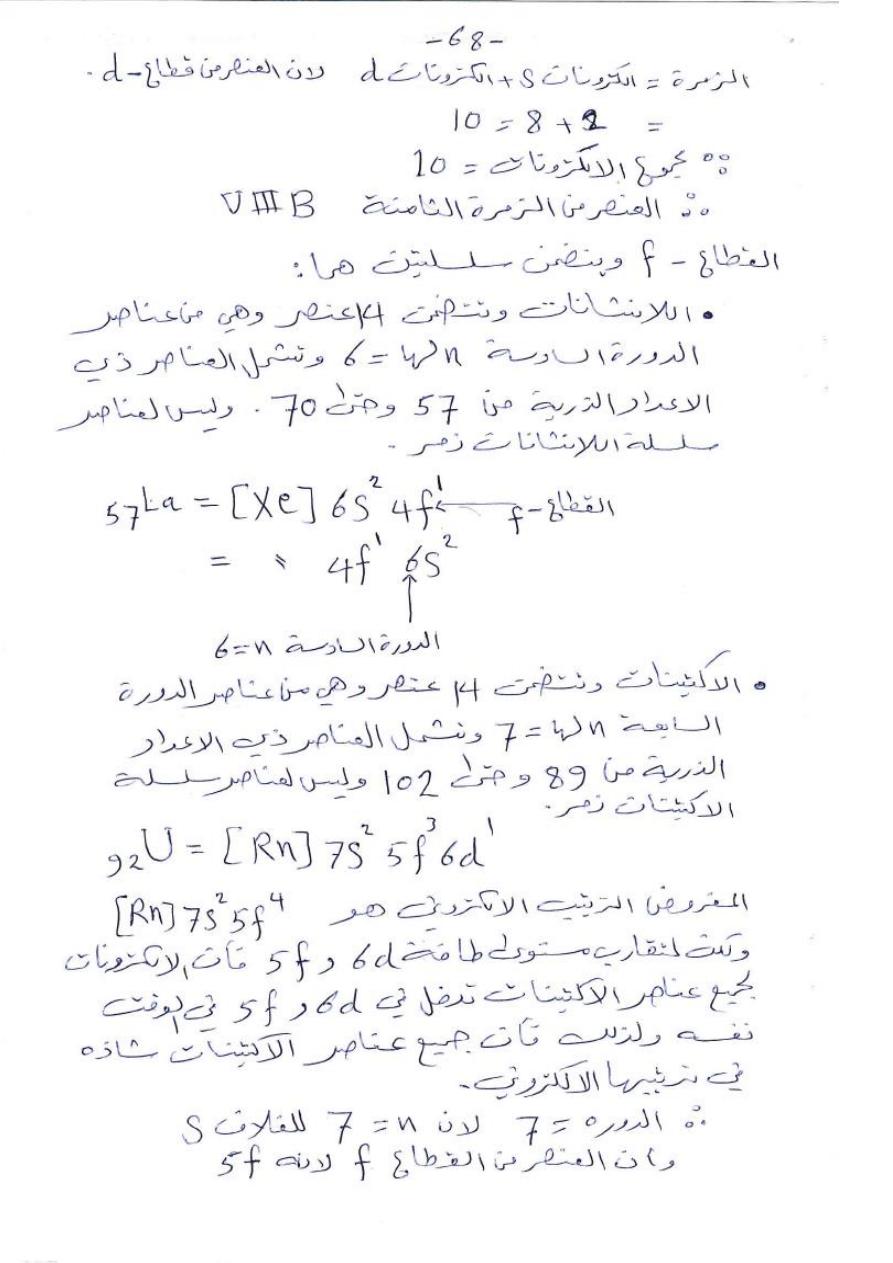 -68-
الزمرة = الكترونات S + الكترونات d لان العنصر من قطاع-d.
= 2 + 8 = 10
∵ مجموع الالكترونات = 10
∴ العنصر من الزمرة الثامنة VIII B
القطاع - f ويتضمن سلسلتين هما:
• اللانثانات وتتضمن 14 عنصر وهي من عناصر
الدورة السادسة n لها = 6 وتشمل العناصر ذي
الاعداد الذرية من 57 وحتى 70. وليس لعناصر
سلسلة اللانثانات زمر.
₅₇La = [Xe] 6S² 4f¹ ← القطاع-f
= " 4f¹ 6S²
الدورة السادسة n=6
• الاكتينات وتتضمن 14 عنصر وهي من عناصر الدورة
السابعة n لها = 7 وتشمل العناصر ذي الاعداد
الذرية من 89 وحتى 102 وليس لعناصر سلسلة
الاكتينات زمر.
₉₂U = [Rn] 7S² 5f³ 6d¹
المفروض الترتيب الالكتروني هو [Rn] 7S² 5f⁴
ولكن لتقارب مستوى طاقة 6d و 5f فأن الالكترونات
لجميع عناصر الاكتينات تدخل في 6d و 5f في الوقت
نفسه ولذلك فأن جميع عناصر الاكتينات شاذه
في ترتيبها الالكتروني.
∴ الدوره = 7 لان n = 7 للغلاف S
وان العنصر من القطاع f لانه 5f